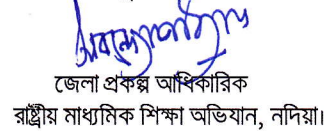 জেলা প্রকল্প আধিকারিক
রাষ্ট্রীয় মাধ্যমিক শিক্ষা অভিযান, নদিয়া।